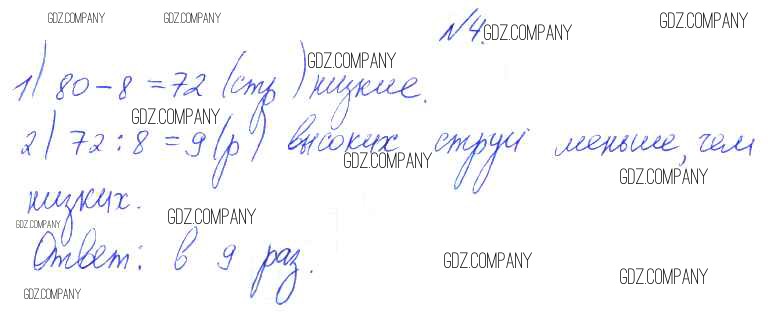 GDZ.COMPANY GDZ.COMPANY №4. GDZ.COMPANY GDZ.COMPANY
GDZ.COMPANY
1) 80-8=72 (стр) низкие.
GDZ.COMPANY
2) 72:8=9(р) высоких струй меньше, чем
GDZ.COMPANY GDZ.COMPANY
низких.
GDZ.COMPANY GDZ.COMPANY
Ответ: в 9 раз.
GDZ.COMPANY GDZ.COMPANY
GDZ.COMPANY